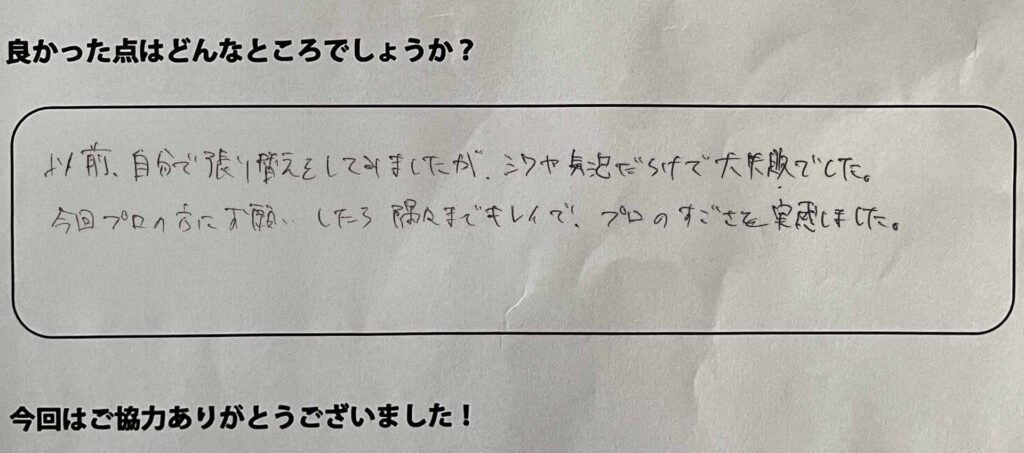 良かった点はどんなところでしょうか？
以前、自分で張り替えをしてみましたが、シワや気泡だらけで大失敗でした。
今回プロの方にお願いしたら隅々までキレイで、プロのすごさを実感しました。
今回はご協力ありがとうございました！